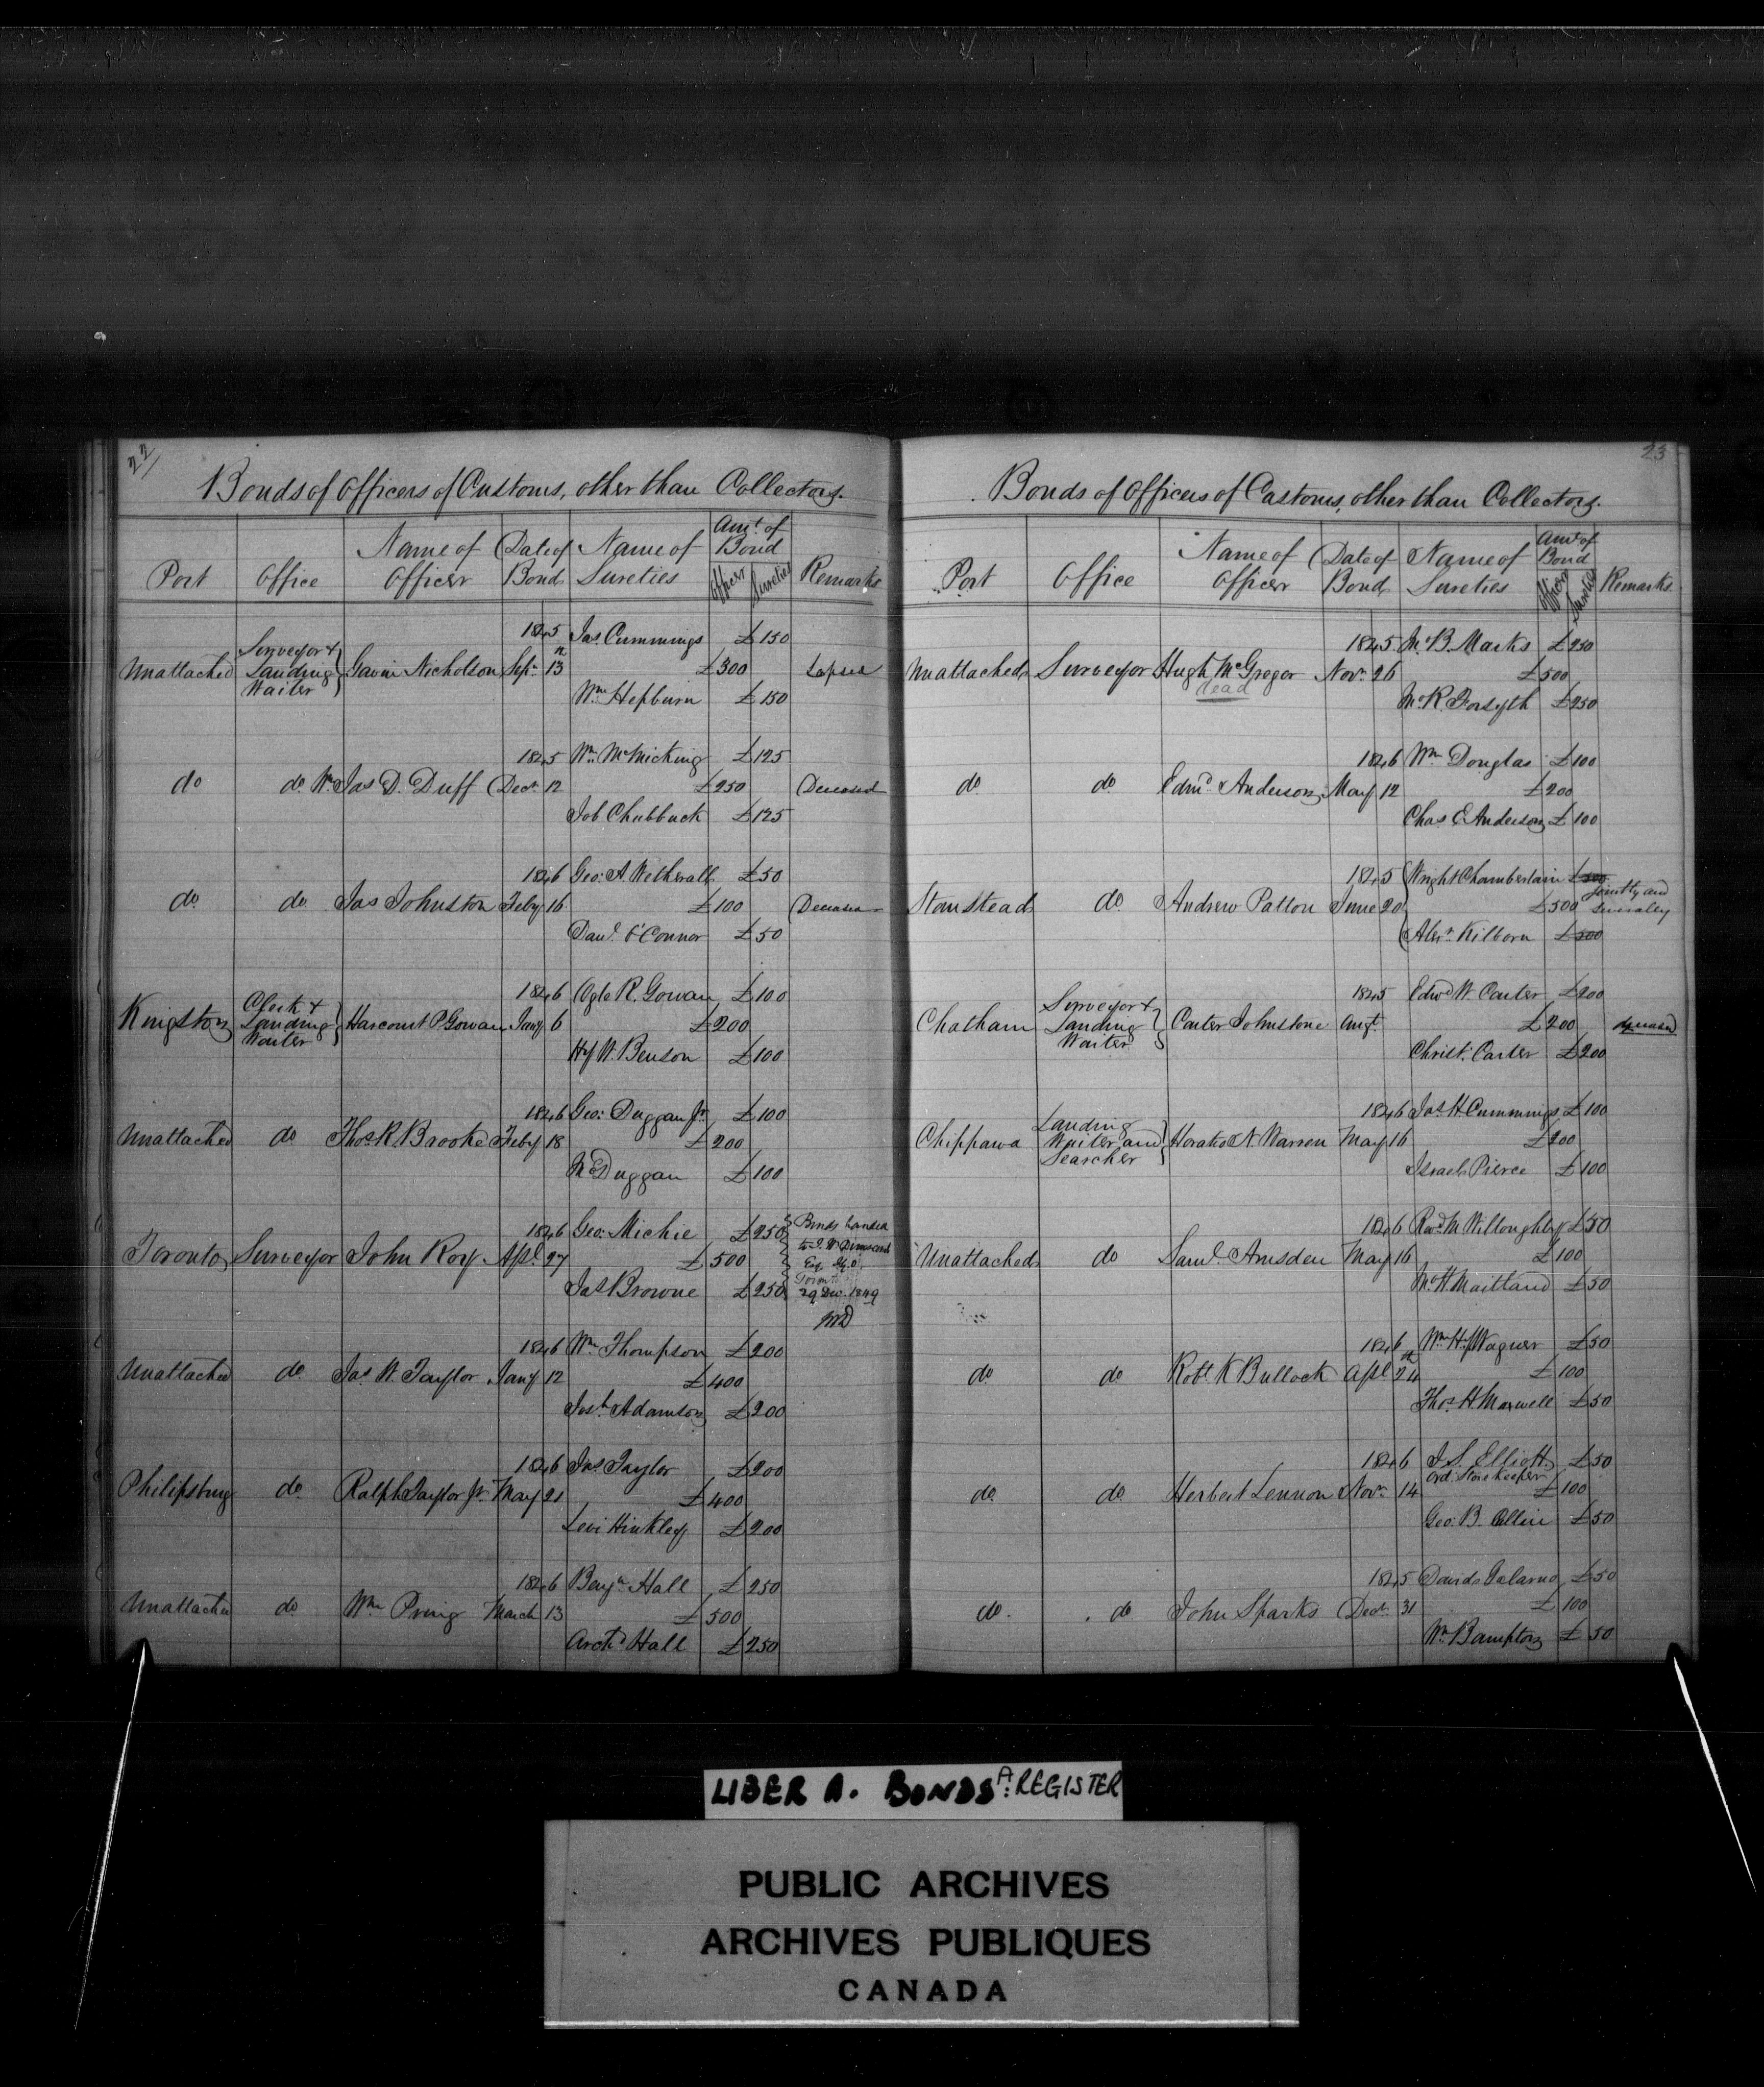 22/
Bonds of Officers of Customs, other than Collectors.
Port Office Name of Officer Date of Bond Name of Sureties Amt. of Bond Officer Sureties Remarks
1845 Jas. Cummings £150
Unattached Surveyor & Landing Waiter } Gavin Nicholson Sepr. 13 £300 Lapsed
Wm. Hepburn £150
1845 Wm. McMicking £125
do do Wm. Jas D. Duff Decr. 12 £250 Deceased
Job Chubbuck £125
1846 Geo: A. Wetherall £50
do do Jas Johnston Feby 16 £100 Deceased
Danl. O'Connor £50
1846 Ogle R. Gowan £100
Kingston Clerk & Landing Waiter } Harcourt P. Gowan Jany 6 £200
Hy W. Benson £100
1846 Geo: Duggan Jr. £100
Unattached do Thos. R Brooke Feby 18 £200
Duggan £100
1846 Geo: Michie £250
Toronto Surveyor John Roy Apl. 27 £500
Jas Browne £250
Bonds handed
to
Esq.
Toronto
29 Dec. 1849
1846 Wm. Thompson £200
Unattached do Jas. W. Taylor Jany 12 £400
Josh. Adamson £200
1846 Jas. Taylor £200
Philipsburg do Ralph Taylor Jr. May 21 £400
Levi Hinkley £200
1846 Benjn. Hall £250
Unattached do Wm Pring March 13 £500
Archd. Hall £250
23
Bonds of Officers of Customs, other than Collectors.
Port Office Name of Officer Date of Bond Name of Sureties Amt. of Bond Officer Sureties Remarks
1845 B. Marks £250
Unattached Surveyor Hugh McGregor Novr. 26 £500
dead
R. Forsyth £250
1846 Wm Douglas £100
do do Edmd. Anderson May 12 £200
Chas. E Anderson £100
1845 Wright Chamberlain £500
Stanstead do Andrew Patton June 20 £500 jointly and severally
Alexr. Kilborn £500
1845 Edwd W. Carter £200
Chatham Surveyor & Landing Waiter } Carter Johnstone Augt. £200 deceased
Christr. Carter £200
1846 Jas H Cummings £100
Chippawa Landing Waiter and Searcher } Horatio N. Warren May 16 £200
Israel Pierce £100
1846 M Willoughby £50
Unattached do Saml. Amsden May 16 £100
H. Maitland £50
1846 Wm. Hy Wagner £50
do do Robt. K Bullock Apl 24th £100
Thos. H. Maxwell £50
1846 J. S. Elliott £50
Ord: Storekeeper
do do Herbert Lennon Novr. 14 £100
Geo: B. £50
1845 David £50
do do John Sparks Decr. 31 £100
Wm. Bampton £50
LIBER A. BONDS A: REGISTER
PUBLIC ARCHIVES
ARCHIVES PUBLIQUES
CANADA